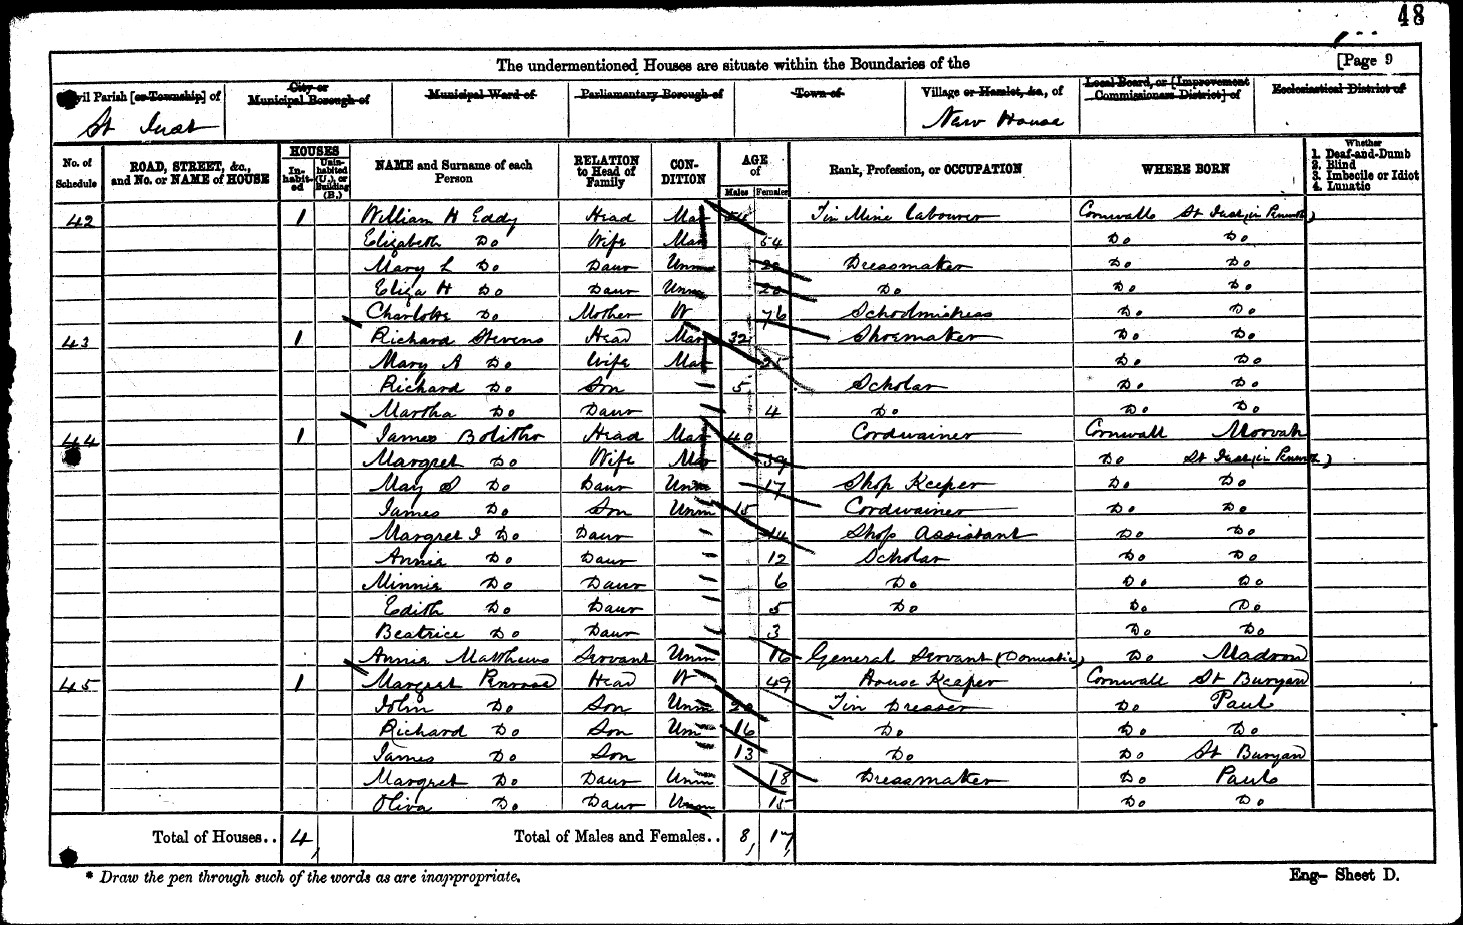 48
The undermentioned Houses are situate within the Boundaries of the [Page 9
Civil Parish [or Township] of City or Municipal Borough of Municipal Ward of Parliamentary Borough of Town of Village or Hamlet, &c., of Local Board, or [Improvement Commissioners District] of Ecclesiastical District of
St Just New House
No. of Schedule ROAD, STREET, &c., and No. or NAME of HOUSE HOUSES In-habit-ed Unin-habited (U.), or Building (B.) NAME and Surname of each Person RELATION to Head of Family CON-DITION AGE of Males Females Rank, Profession, or OCCUPATION WHERE BORN Whether 1. Deaf-and-Dumb 2. Blind 3. Imbecile or Idiot 4. Lunatic
42 1 William H Eddy Head Mar 54 Tin Mine labourer Cornwall St Just (in Penwith)
Elizabeth Do Wife Mar 54 Do Do
Mary L Do Daur Unm Dressmaker Do Do
Eliza H Do Daur Unm 20 Do Do Do
Charlotte Do Mother W 76 Schoolmistress Do Do
43 1 Richard Stevens Head Mar 32 Shoemaker Do Do
Mary A Do Wife Mar 25 Do Do
Richard Do Son 5 Scholar Do Do
Martha Do Daur 4 Do Do Do
44 1 James Bolitho Head Mar 40 Cordwainer Cornwall Morvah
Margret Do Wife Mar 39 Do St Just (in Penwith)
May S Do Daur Unm 17 Shop Keeper Do Do
James Do Son Unm 15 Cordwainer Do Do
Margret J Do Daur 14 Shop Assistant Do Do
Annie Do Daur 12 Scholar Do Do
Minnie Do Daur 6 Do Do Do
Edith Do Daur 5 Do Do Do
Beatrice Do Daur 3 Do Do
Annie Matthews Servant Unm 16 General Servant (Domestic) Do Madron
45 1 Margret Penrose Head W 49 House Keeper Cornwall St Buryan
John Do Son Unm 20 Tin Dresser Do Paul
Richard Do Son Unm 16 Do Do Do
James Do Son 13 Do Do St Buryan
Margret Do Daur Unm 18 Dressmaker Do Paul
Oliva Do Daur Unm 15 Do Do
Total of Houses.. 4 Total of Males and Females.. 8 17
* Draw the pen through such of the words as are inappropriate. Eng- Sheet D.